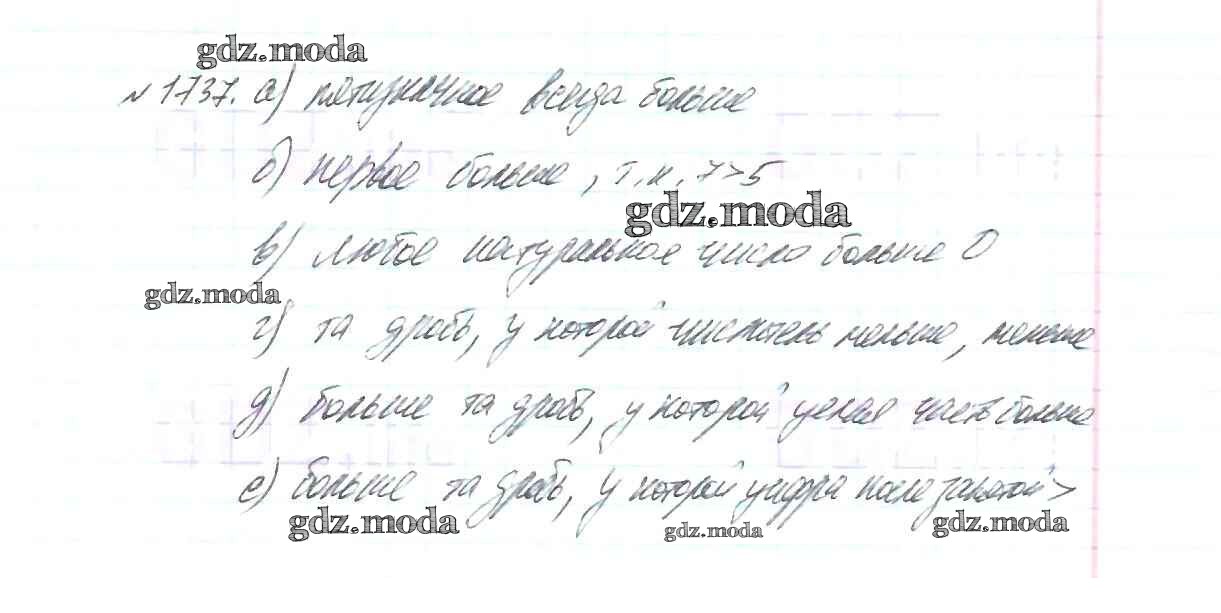 gdz.moda
№ 1737. а) пятизначное всегда больше
б) первое больше, т.к. 7>5
gdz.moda
в) любое натуральное число больше 0
gdz.moda
г) та дробь, у которой числитель меньше, меньше
д) больше та дробь, у которой целая часть больше
е) больше та дробь, у которой цифра после запятой >
gdz.moda
gdz.moda
gdz.moda